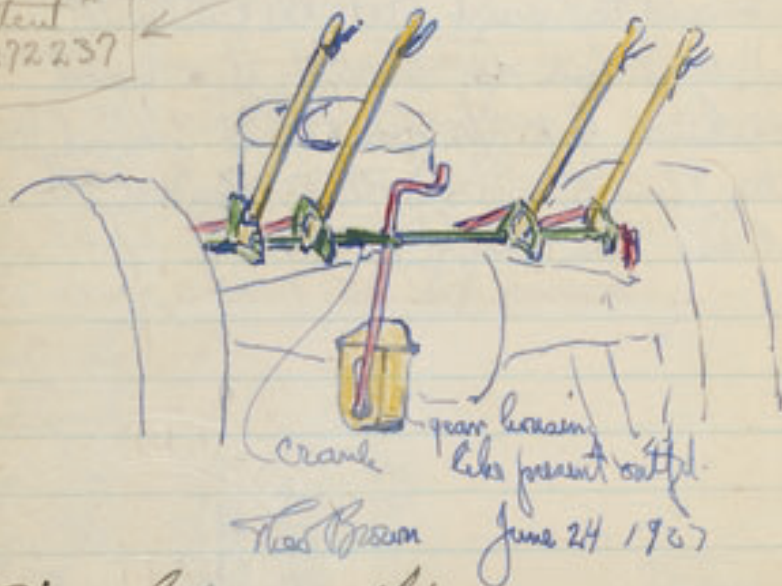 tent"
72237
crank
gear housing
like present outfit.
Theo Brown June 24 19